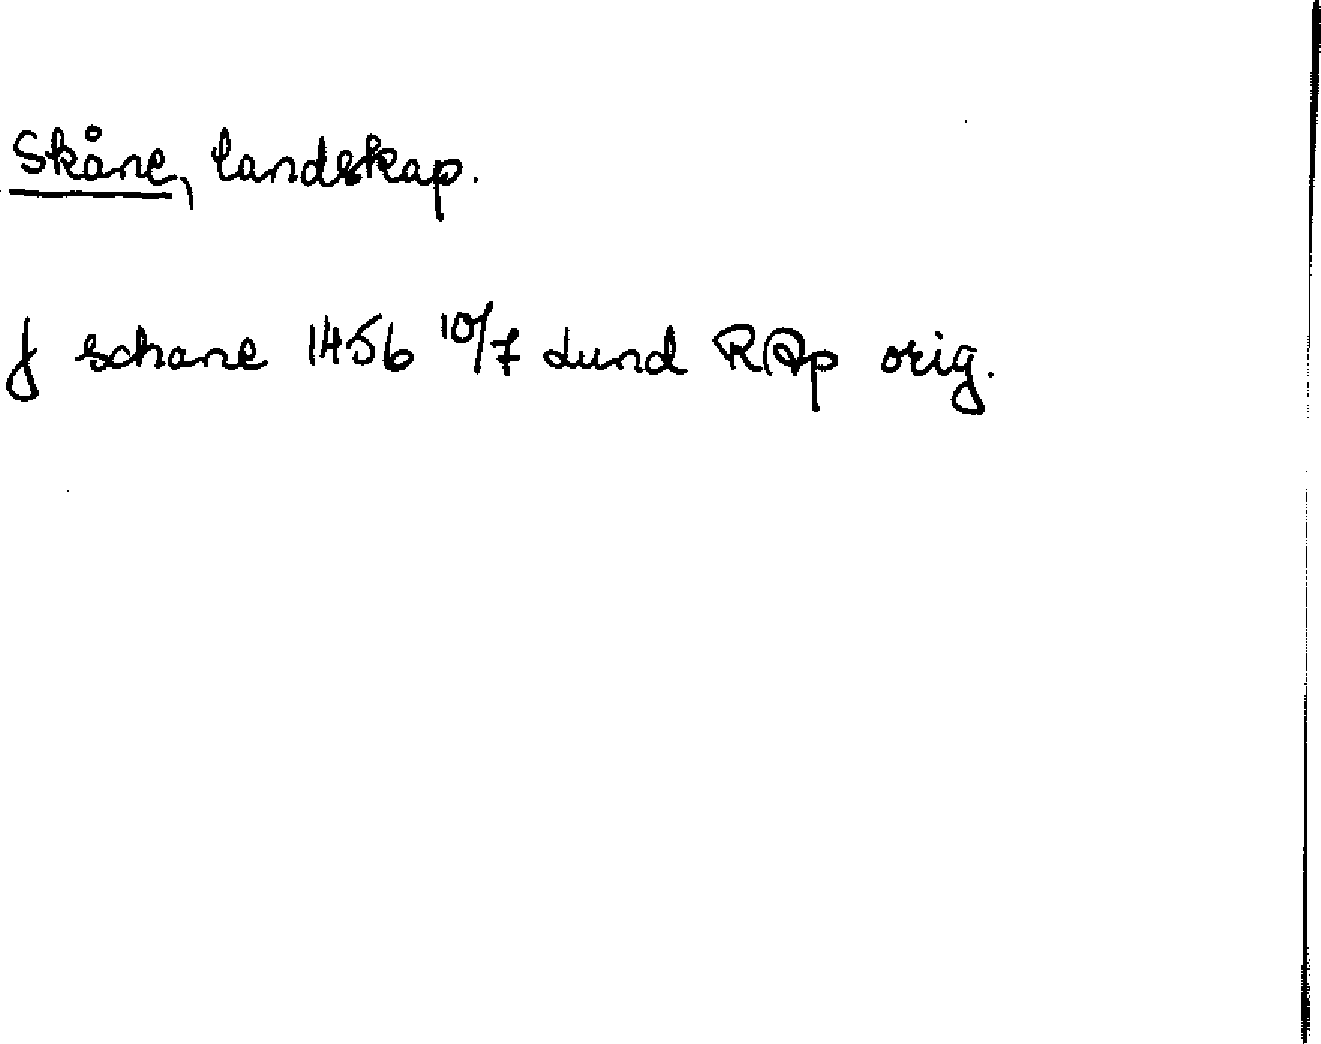 Skåne, landskap.
j schane 1456 10/7 Lund RAp orig.